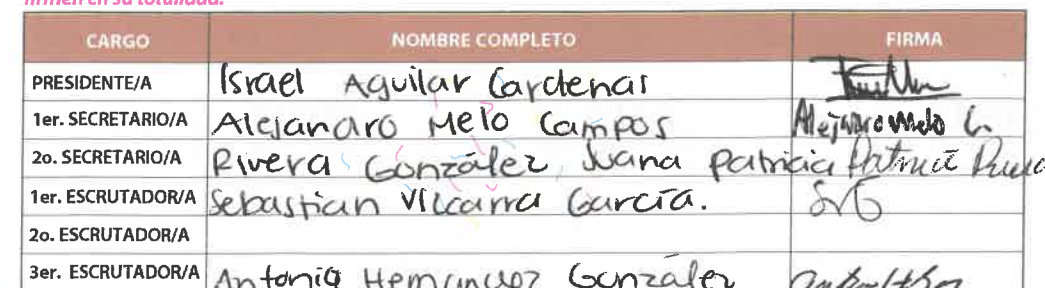 firmen en su totalidad.
CARGO NOMBRE COMPLETO FIRMA
PRESIDENTE/A Israel Aguilar Cardenas
1er. SECRETARIO/A Alejandro Melo Campos Alejandro Melo C.
2o. SECRETARIO/A Rivera González Juana Patricia Patricia Rivera
1er. ESCRUTADOR/A Sebastian Vizcarra García.
2o. ESCRUTADOR/A
3er. ESCRUTADOR/A Antonio Hernandez González